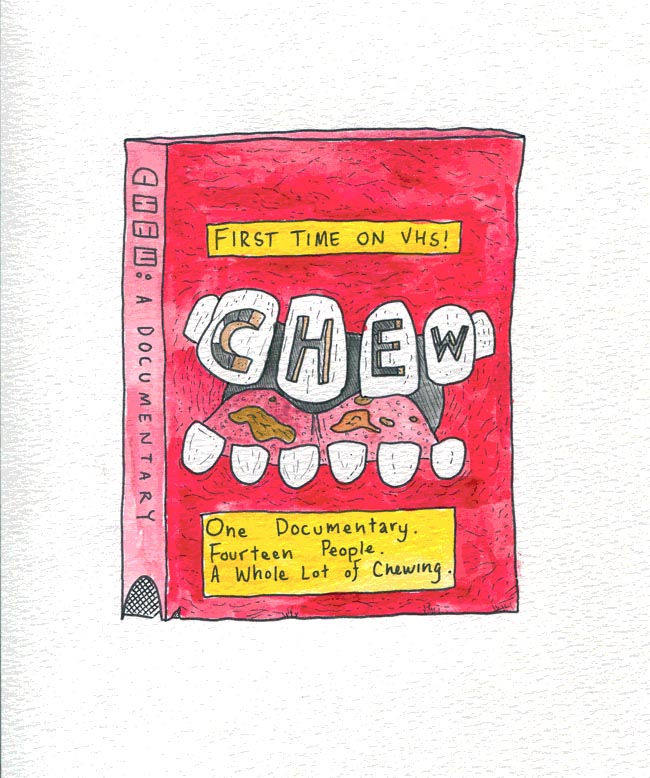 CHEW: A DOCUMENTARY
FIRST TIME ON VHS!
CHEW
One Documentary.
Fourteen People.
A Whole Lot of Chewing.